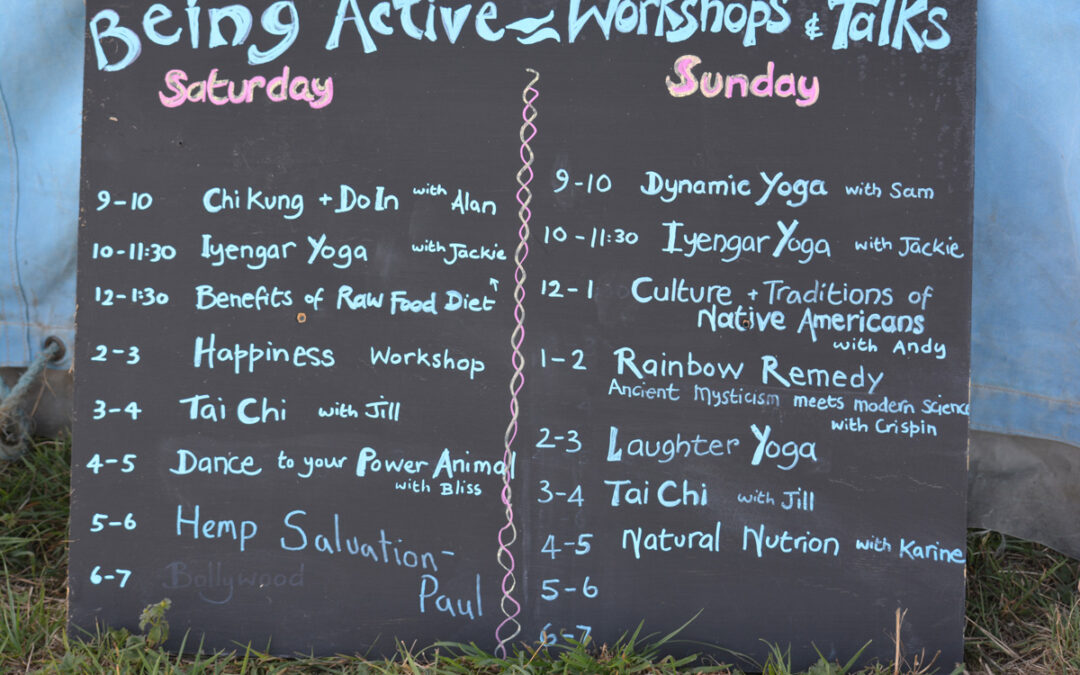 Being Active ~ Workshops & Talks
Saturday
9-10 Chi Kung + Do In with Alan
10-11:30 Iyengar Yoga with Jackie
12-1:30 Benefits of Raw Food Diet
2-3 Happiness Workshop
3-4 Tai Chi with Jill
4-5 Dance to your Power Animal
with Bliss
5-6 Hemp Salvation-
Paul
6-7 Bollywood
Sunday
9-10 Dynamic Yoga with Sam
10-11:30 Iyengar Yoga with Jackie
12-1 Culture + Traditions of
Native Americans
with Andy
1-2 Rainbow Remedy
Ancient Mysticism meets modern Science
with Crispin
2-3 Laughter Yoga
3-4 Tai Chi with Jill
4-5 Natural Nutrion with Karine
5-6
6-7